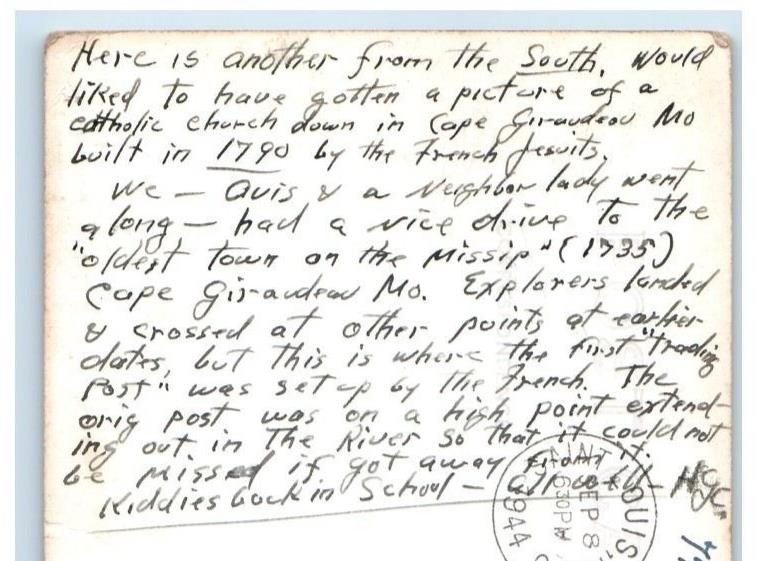 Here is another from the South. Would
liked to have gotten a picture of a
catholic church down in Cape Giraudeau Mo
built in 1790 by the French Jesuits.
We — Avis & a Neighbor lady went
along — had a nice drive to the
"oldest town on the Missip" (1735)
Cape Giraudeau Mo. Explorers landed
& crossed at other points at earlier
dates, but this is where the first "Trading
Post" was set up by the French. The
orig post was on a high point extend-
ing out in The River so that it could not
be missed if got away from it.
Kiddies back in School — all well —
LOUIS
SEP 8
630PM
1944